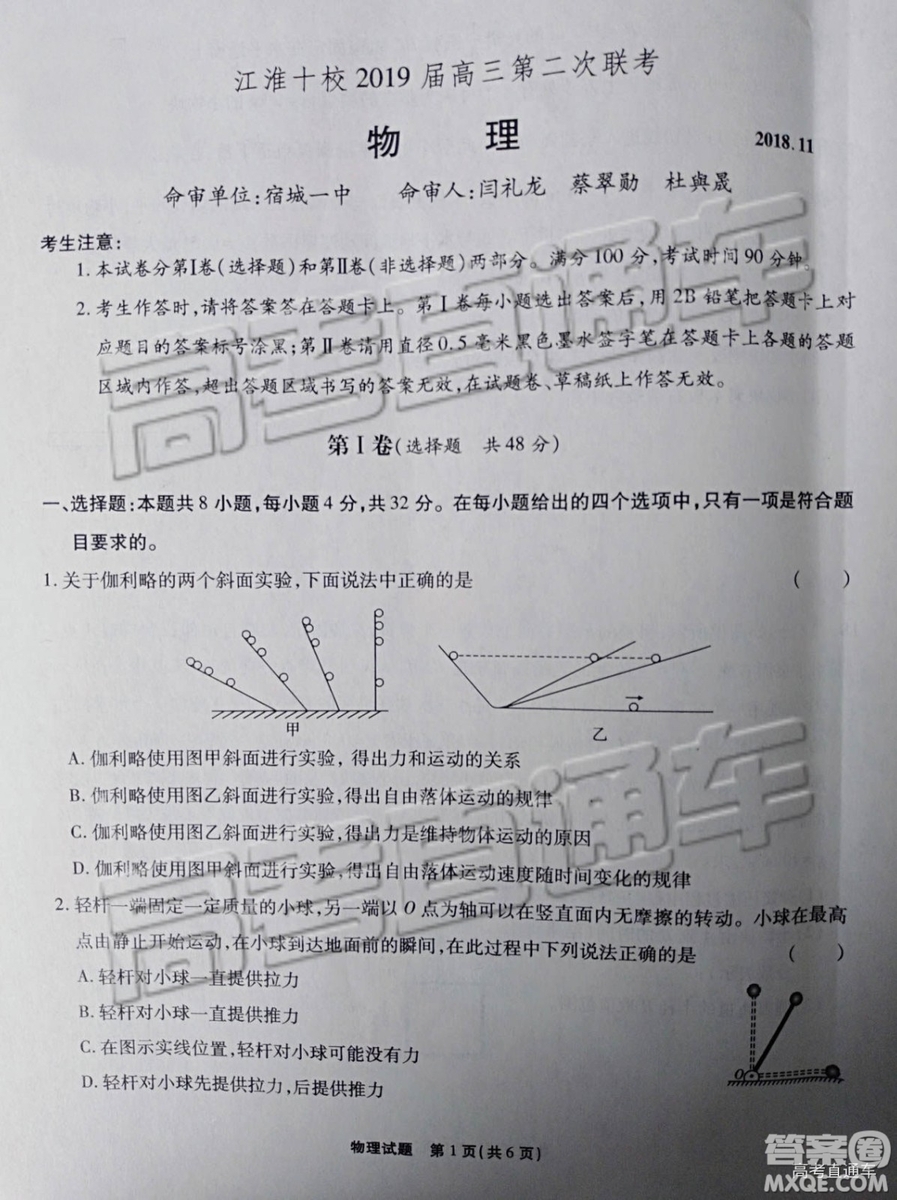 江淮十校2019届高三第二次联考
物 理
2018.11
命审单位:宿城一中 命审人:闫礼龙 蔡翠勋 杜與晟
考生注意:
1.本试卷分第Ⅰ卷(选择题)和第Ⅱ卷(非选择题)两部分。满分100分,考试时间90分钟。
2.考生作答时,请将答案答在答题卡上。第Ⅰ卷每小题选出答案后,用2B铅笔把答题卡上对
应题目的答案标号涂黑;第Ⅱ卷请用直径0.5毫米黑色墨水签字笔在答题卡上各题的答题
区域内作答,超出答题区域书写的答案无效,在试题卷、草稿纸上作答无效。
第Ⅰ卷(选择题 共48分)
一、选择题:本题共8小题,每小题4分,共32分。在每小题给出的四个选项中,只有一项是符合题
目要求的。
1.关于伽利略的两个斜面实验,下面说法中正确的是 ( )
甲
乙
A.伽利略使用图甲斜面进行实验,得出力和运动的关系
B.伽利略使用图乙斜面进行实验,得出自由落体运动的规律
C.伽利略使用图乙斜面进行实验,得出力是维持物体运动的原因
D.伽利略使用图甲斜面进行实验,得出自由落体运动速度随时间变化的规律
2.轻杆一端固定一定质量的小球,另一端以O点为轴可以在竖直面内无摩擦的转动。小球在最高
点由静止开始运动,在小球到达地面前的瞬间,在此过程中下列说法正确的是 ( )
A.轻杆对小球一直提供拉力
B.轻杆对小球一直提供推力
C.在图示实线位置,轻杆对小球可能没有力
D.轻杆对小球先提供拉力,后提供推力
O
物理试题 第1页(共6页)
高考直通车
高考直通车
答案圈
高考直通车
MXQE.COM